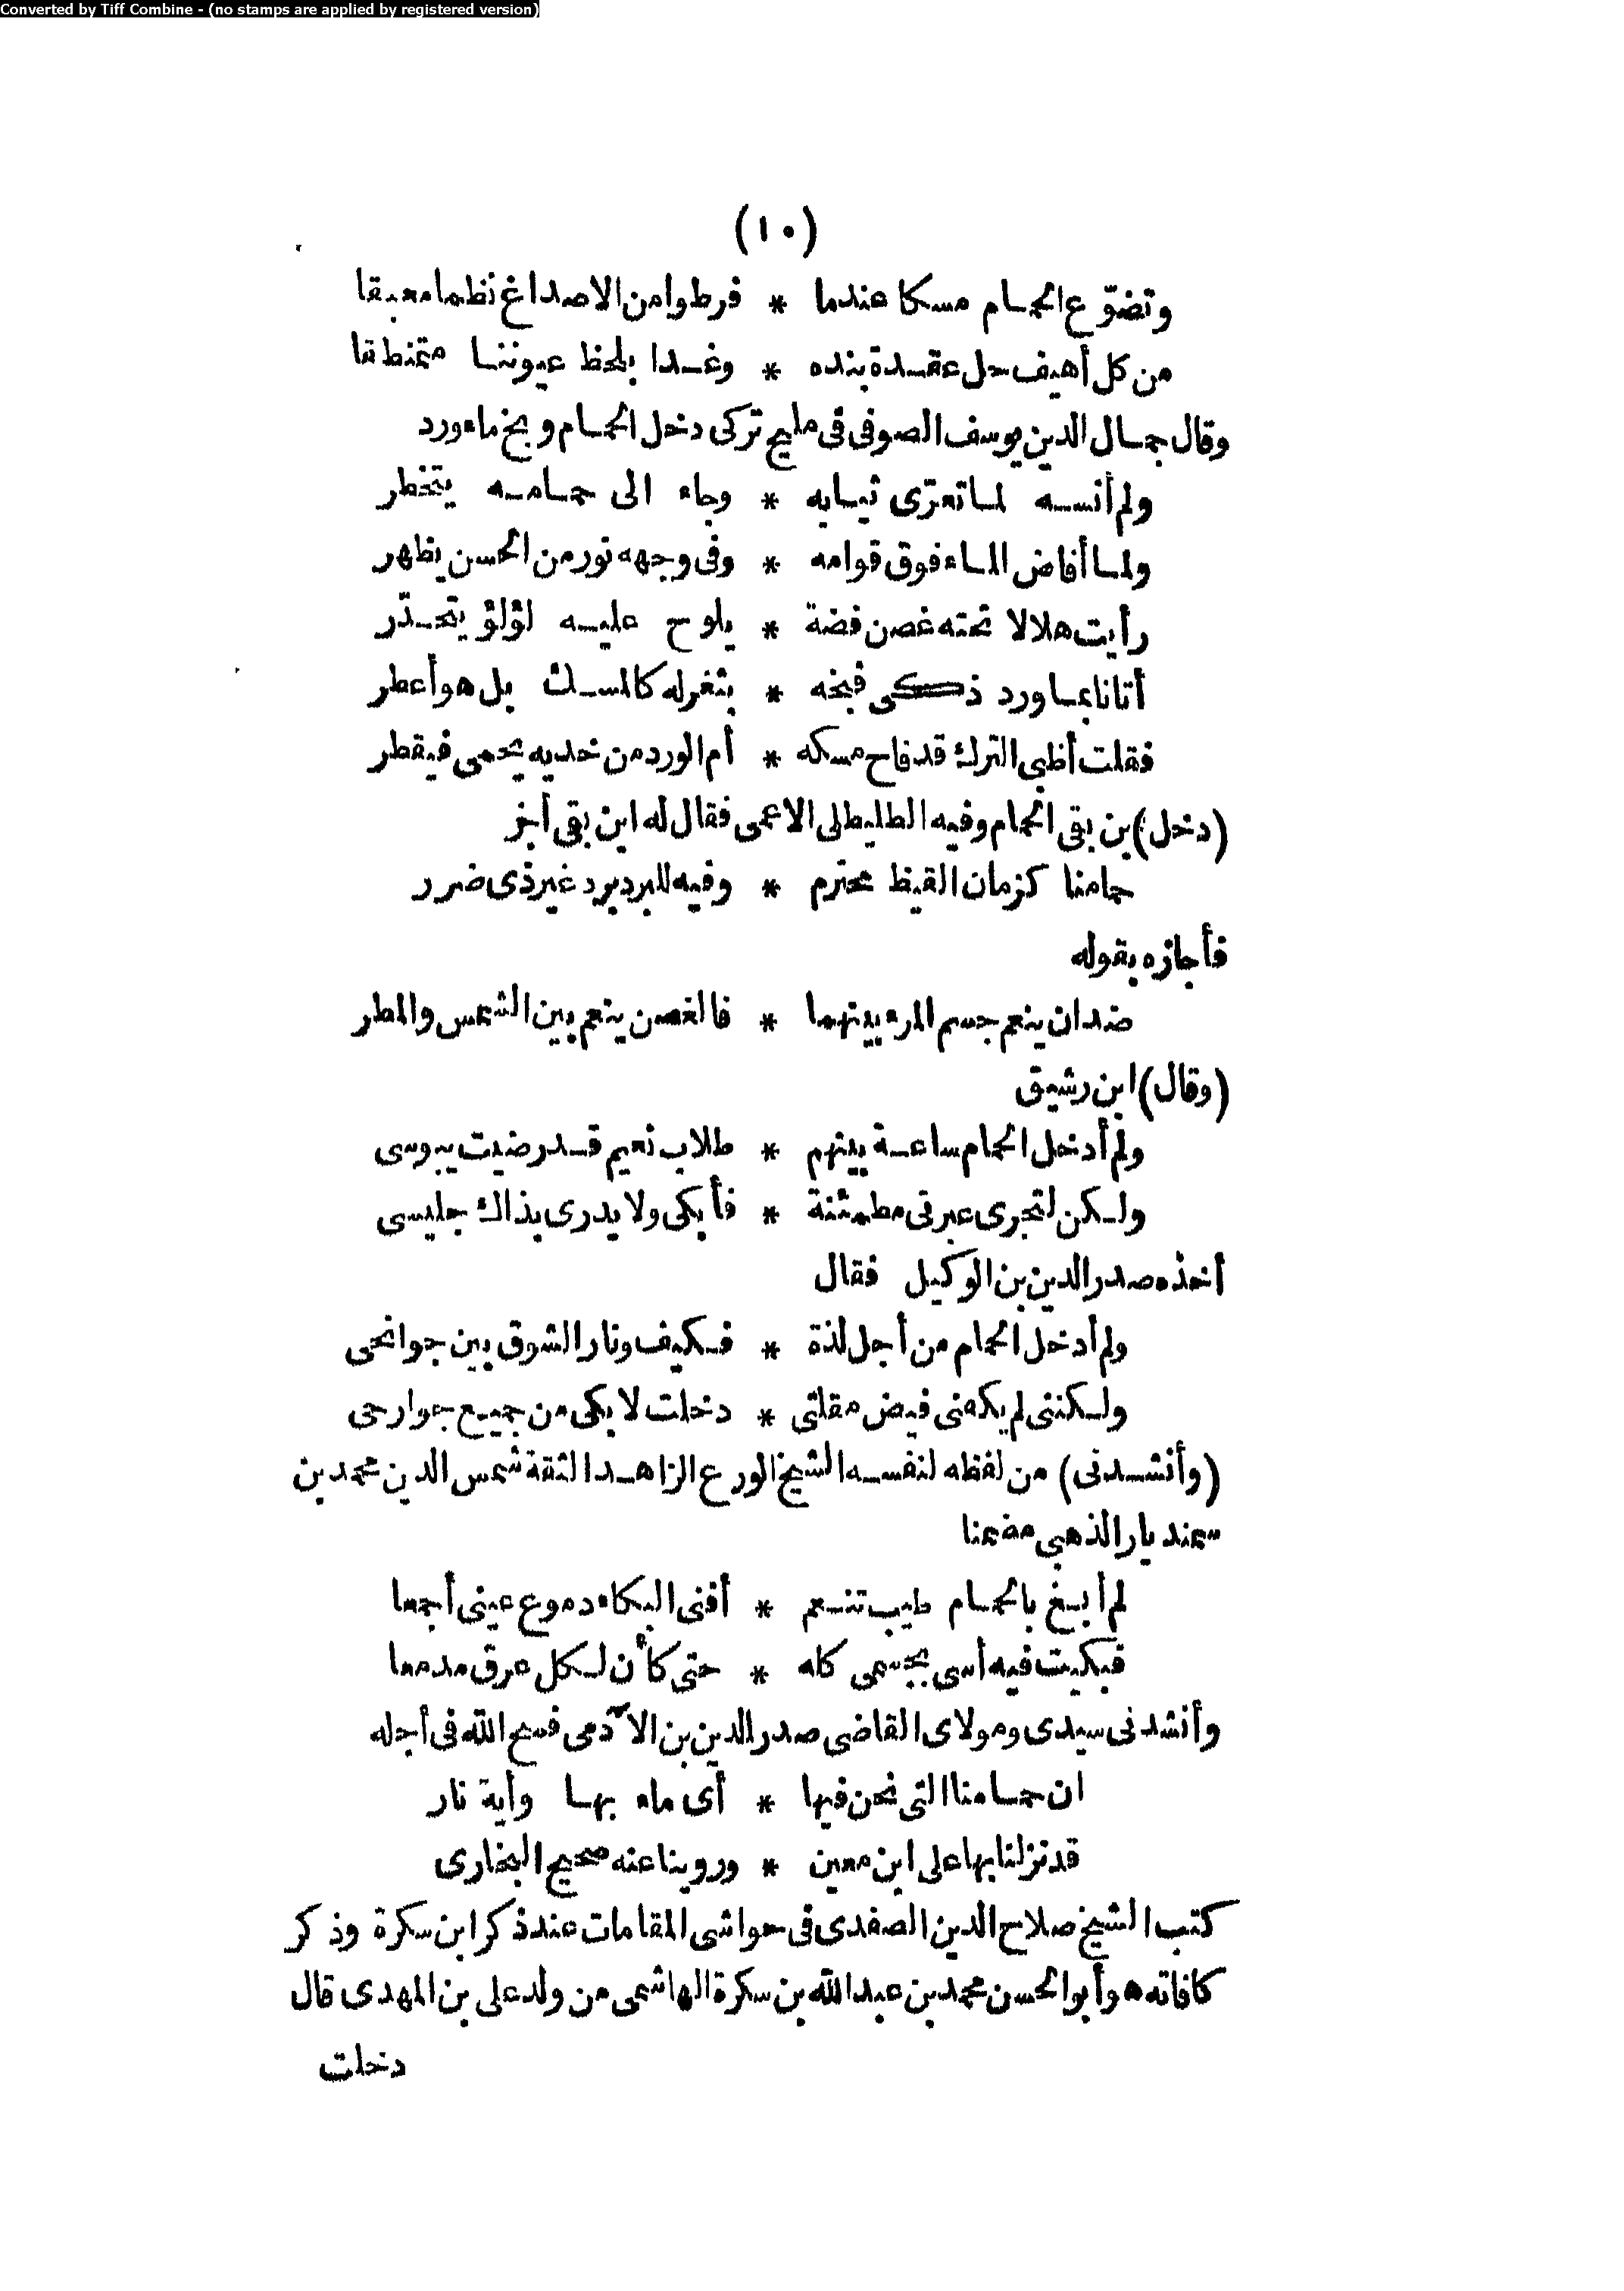 Converted by Tiff Combine - (no stamps are applied by registered version)
(١٠)
وتضوّع الحمام مسكا عندما * فرطوا من الاصداغ نظما معبقا
من كل أهيف حل عقدة بنده * وغدا بلحظ عيوننا متمنطقا
وقال جمال الدين يوسف الصوفى فى مليح تركى دخل الحمام وبخ ماء ورد
ولم أنسه لما تعرّى ثيابه * وجاء الى حمامه يتخطر
ولما أفاض الماء فوق قوامه * وفى وجهه نور من الحسن يظهر
رأيت هلالا تحته غصن فضة * يلوح عليه لؤلؤ يتحدّر
أتانا بماورد ذكى فبخه * بثغر له كالمسك بل هو أعطر
فقلت أظبى الترك قد فاح مسكه * أم الورد من خديه يحمى فيقطر
(دخل) بن بقى الحمام وفيه الطليطلى الاعمى فقال له ابن بقى أجز
حمامنا كزمان القيظ محترم * وفيه للبرد برد غير ذى ضرر
فأجازه بقوله
ضدان ينعم جسم المرء بينهما * فالغصن ينعم بين الشمس والمطر
(وقال) ابن رشيق
ولم أدخل الحمام ساعة بينهم * طلاب نعيم قد رضيت ببوسى
ولكن لتجرى عبرتى مطمئنة * فأبكى ولا يدرى بذاك جليسى
أخذه صدر الدين بن الوكيل فقال
ولم أدخل الحمام من أجل لذة * فكيف ونار الشوق بين جوانحى
ولكننى لم يكفنى فيض مقلتى * دخلت لابكى من جميع جوارحى
(وأنشدنى) من لفظه لنفسه الشيخ الورع الزاهد الثقة شمس الدين محمد بن
سمنديار الذهبى مضمنا
لم أبغ بالحمام طيب تنعم * أفنى البكاء دموع عينى أجمعا
فبكيت فيه أسى بجسمى كله * حتى كأن لكل عرق مدمعا
وأنشدنى سيدى ومولاى القاضى صدر الدين بن الآدمى فسح الله فى أجله
ان حمامنا التى نحن فيها * أى ماء بها وأية نار
قد نزلنا بها على ابن معين * وروينا عنه صحيح البخارى
كتب الشيخ صلاح الدين الصفدى فى حواشى المقامات عند ذكر ابن سكرة وذكر
كافاته هو أبو الحسن محمد بن عبد الله بن سكرة الهاشمى من ولد على بن المهدى قال
دخلت